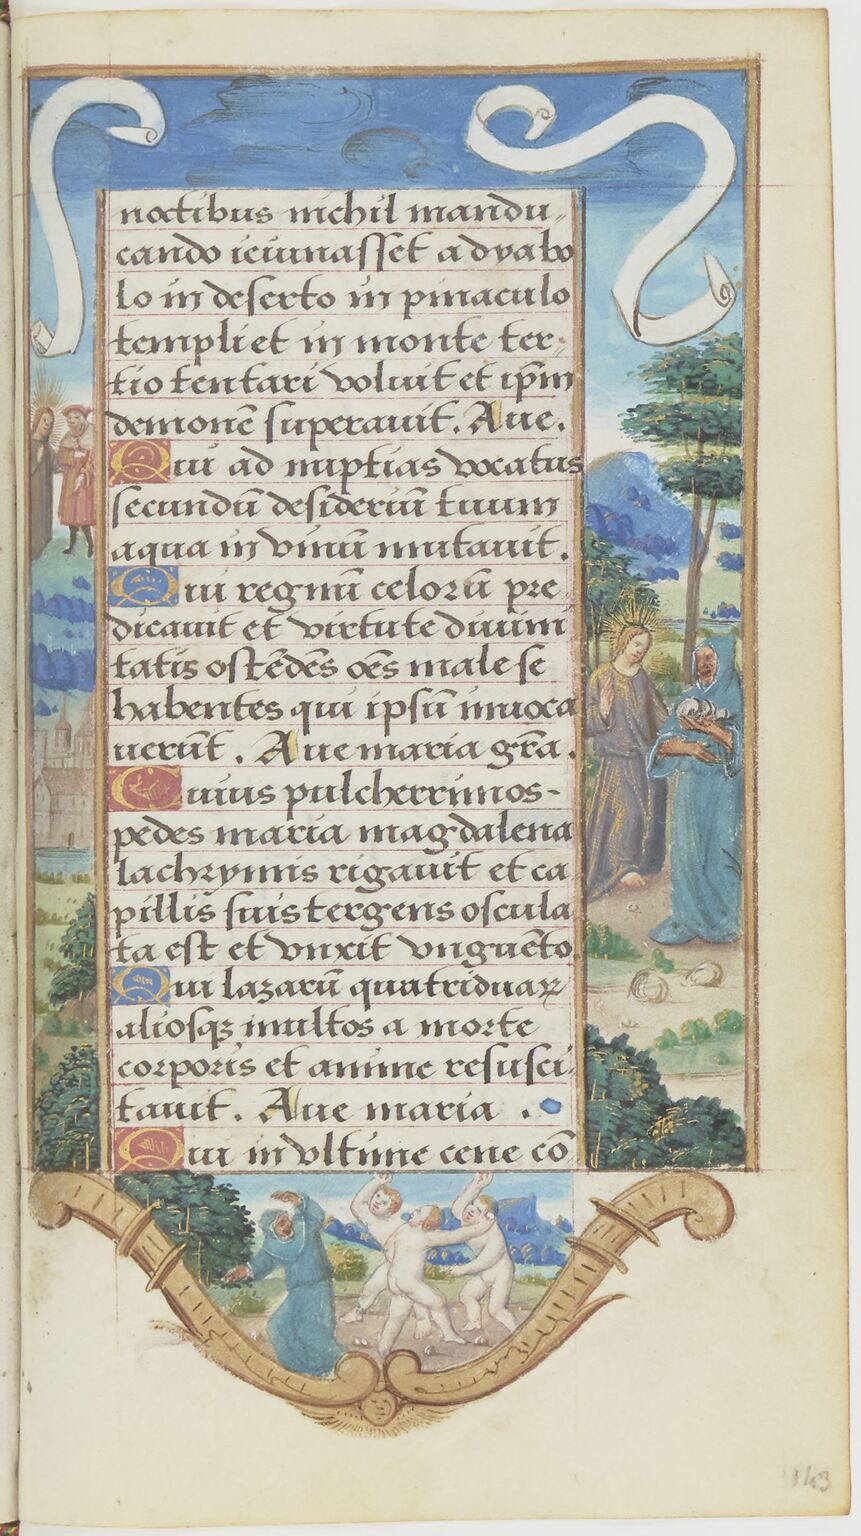 noctibus nichil mandu„
cando ieiunasset a dyabo
lo in deserto in pinaculo
templi et in monte ter„
tio tentari voluit et ip̄m
demonē superauit. Aue.
Qui ad nuptias vocatus
secundū desideriū tuum
aqua in vinū mutauit.
Qui regnū celorū pre
dicauit et virtute diuini
tatis ostēdēs oēs male se
habentes qui ipsū inuoca
uerūt. Aue maria gr̄a.
Cuius pulcherrimos-
pedes maria magdalena
lachrymis rigauit et ca
pillis suis tergens oscula
ta est et vnxit vnguēto.
Qui lazarū quatriduaꝝ
aliosqꝫ multos a morte
corporis et anime resusci
tauit. Aue maria.
Qui in vltime cene cō
143